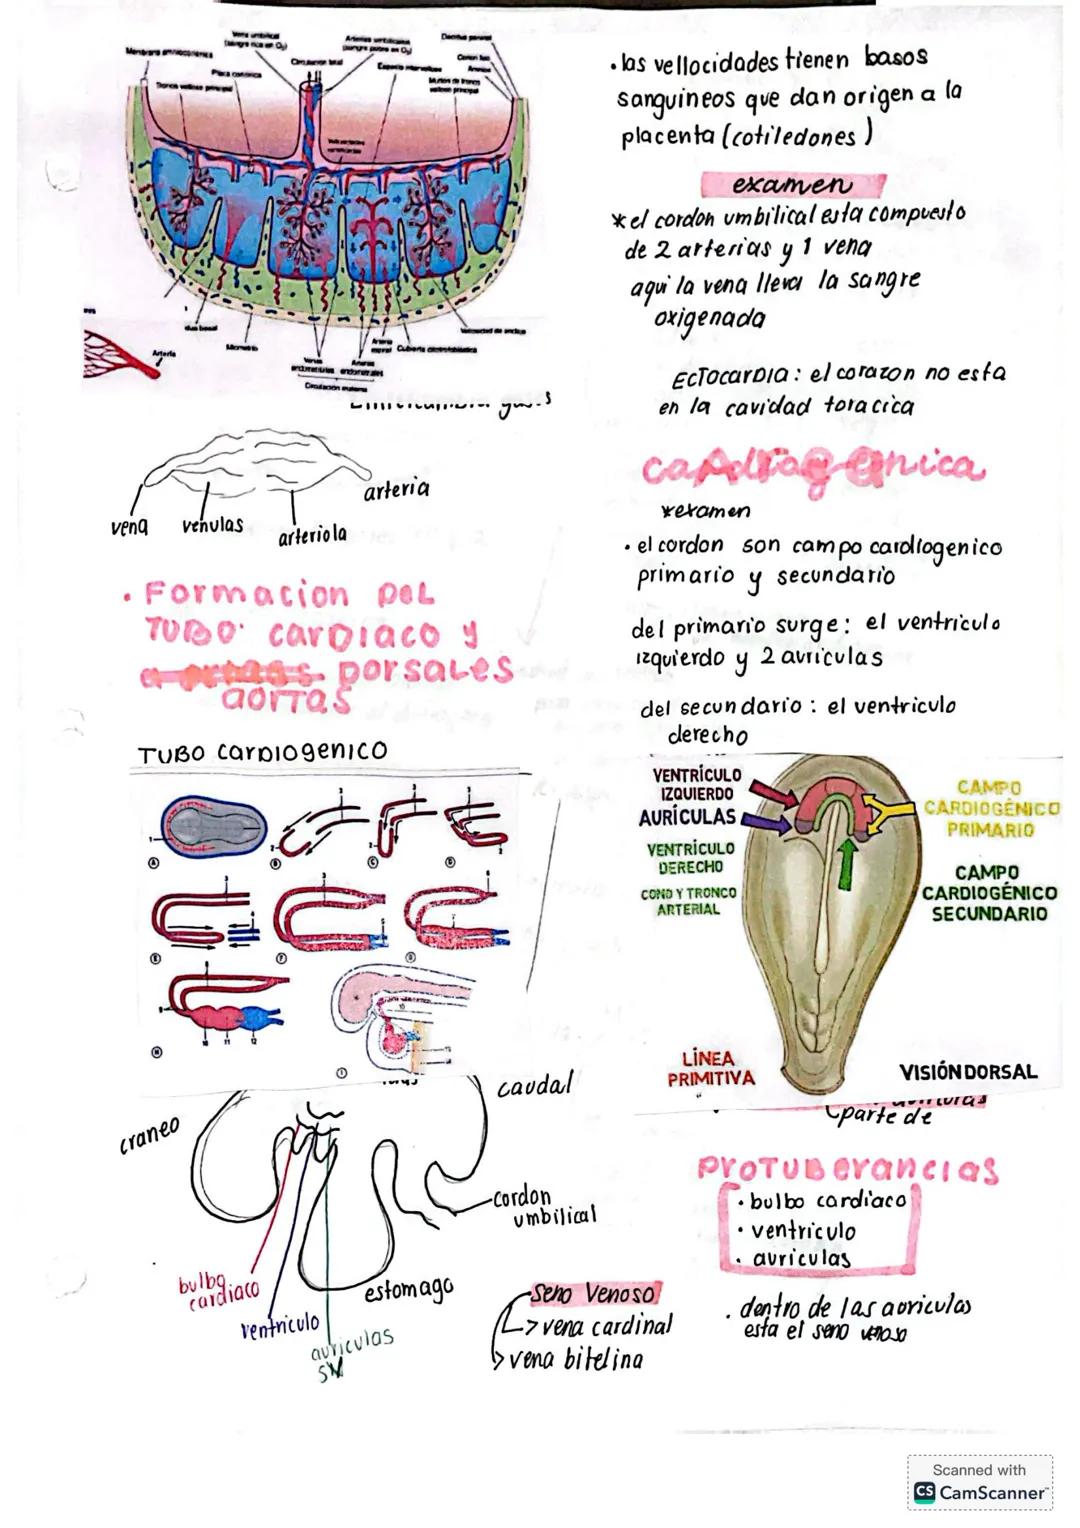 Vena umbilical
(sangre rica en O₂)
Arterias umbilicales
(sangre pobre en O₂)
Decidua parietal
Circulación fetal
Amnios
Espacio intervelloso
Placa coriónica
Tronco velloso principal
Miometrio
Arteria
Cubierta citotrofoblástica
Venas
endometriales
Arterias
endometriales
Circulación materna
vena
venulas
arteriola
arteria
• Formacion DEL
TUBO cardiaco y
dorsales
aortas
TUBO cardiogenico
craneo
caudal
cordon
umbilical
bulbo
cardiaco
ventriculo
auriculas
SV
estomago
Seno Venoso
-> vena cardinal
> vena bitelina
• las vellocidades tienen basos
sanguineos que dan origen a la
placenta (cotiledones)
examen
* el cordon umbilical esta compuesto
de 2 arterias y 1 vena
aqui la vena lleva la sangre
oxigenada
ECTOCARDIA: el corazon no esta
en la cavidad toracica
*examen
• el cordon son campo cardiogenico
primario y secundario
del primario surge: el ventriculo
izquierdo y 2 auriculas
del secundario: el ventriculo
derecho
VENTRÍCULO
IZQUIERDO
AURÍCULAS
VENTRÍCULO
DERECHO
CONO Y TRONCO
ARTERIAL
CAMPO
CARDIOGÉNICO
PRIMARIO
CAMPO
CARDIOGÉNICO
SECUNDARIO
LÍNEA
PRIMITIVA
VISIÓN DORSAL
parte de
Protuberancias
• bulbo cardiaco
• ventriculo
• auriculas
. dentro de las auriculas
esta el seno venoso
Scanned with
CS CamScanner